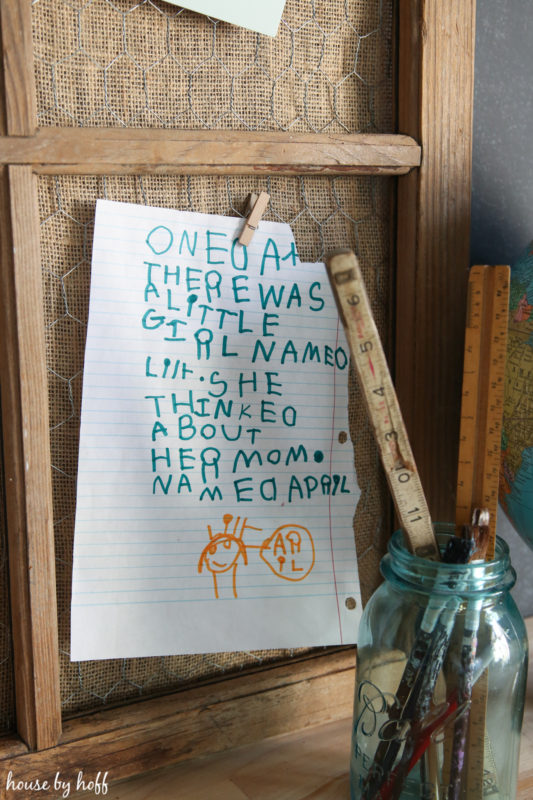 ONE DAY
THERE WAS
A LITTLE
GIRL NAMED
SHE
THINKED
ABOUT
HER MOM.
NAMED APRIL
AP
RIL
6
5
4
3
2
11
house by hoff